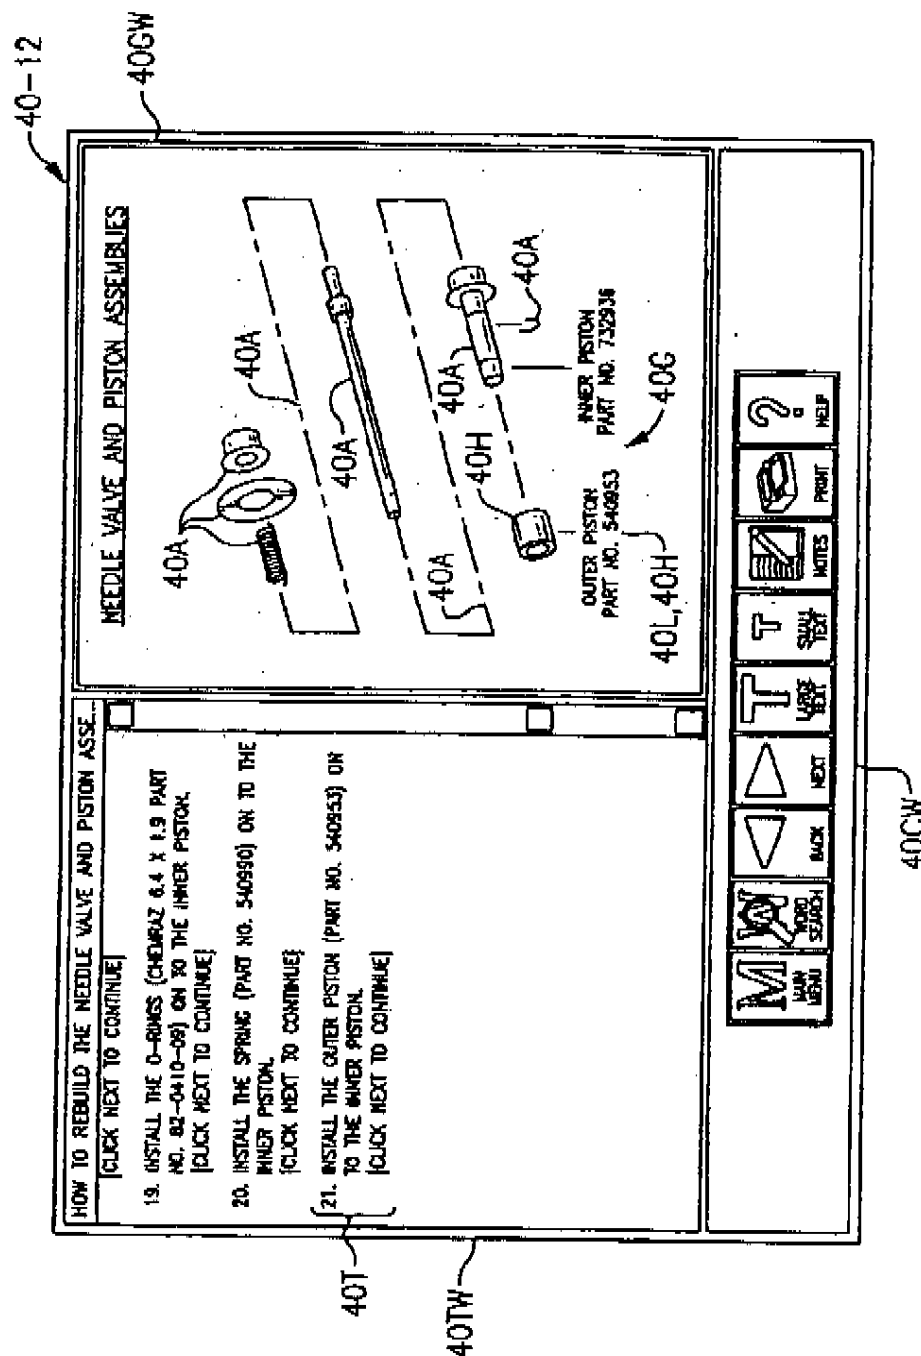 40-12
40GW
HOW TO REBUILD THE NEEDLE VALVE AND PISTON ASSE
[CLICK NEXT TO CONTINUE]
19. INSTALL THE O-RINGS (CHEMRAZ 6.4 X 1.9 PART
NO. 82-0410-09) ON TO THE INNER PISTON.
[CLICK NEXT TO CONTINUE]
20. INSTALL THE SPRING (PART NO. 540990) ON TO THE
INNER PISTON.
[CLICK NEXT TO CONTINUE]
21. INSTALL THE OUTER PISTON (PART NO. 540953) ON
TO THE INNER PISTON.
[CLICK NEXT TO CONTINUE]
40T
40TW
NEEDLE VALVE AND PISTON ASSEMBLIES
40A
40A
40A
40A
40H
40A
40A
OUTER PISTON
PART NO. 540953
INNER PISTON
PART NO. 732936
40L,40H
40G
MAIN
MENU
WORD
SEARCH
BACK
NEXT
T
LARGE
TEXT
T
SMALL
TEXT
NOTES
PRINT
?
HELP
40CW